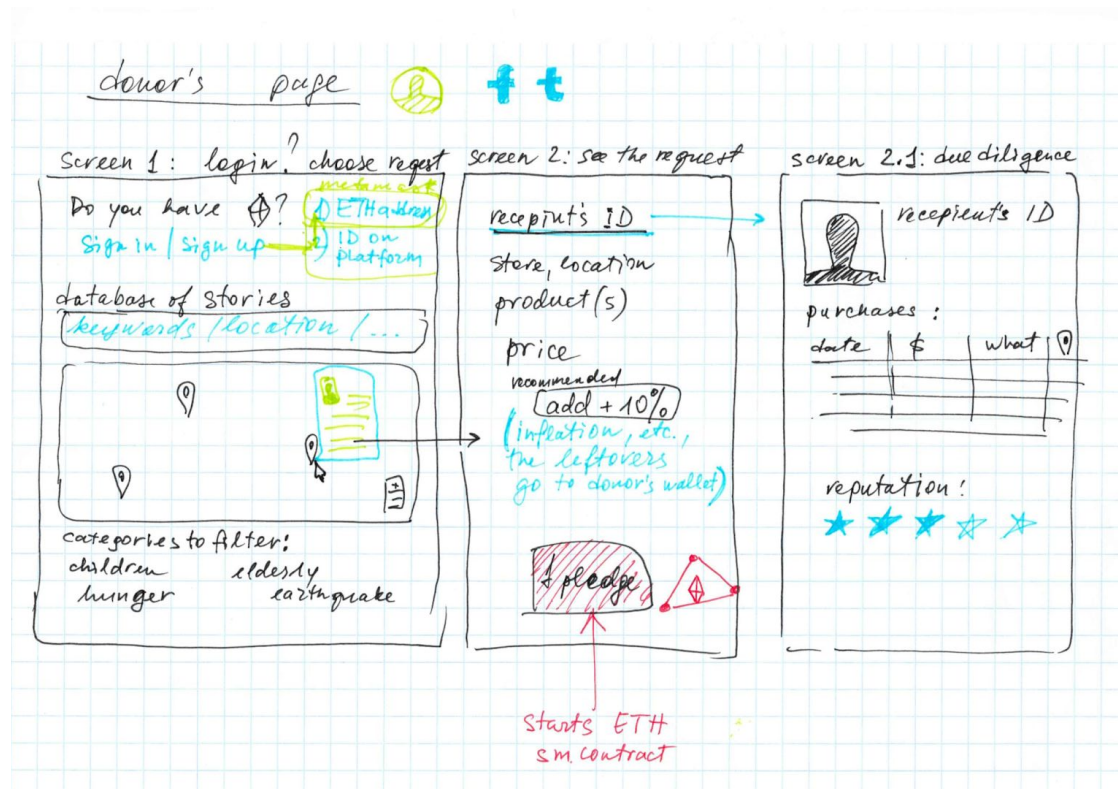 donor's page
f t
screen 1: login? choose reqest
Do you have ?
Sign in / Sign up
metamask
1) ETH address
2) ID on platform
database of stories
keywords / location / ...
categories to filter:
children elderly
hunger earthquake
screen 2: see the request
recepint's ID
store, location
product(s)
price
recommended
add + 10%
(inflation, etc.,
the leftovers
go to donor's wallet)
I pledge
starts ETH
sm. contract
screen 2.1: due diligence
recepient's ID
purchases:
date $ what
reputation: